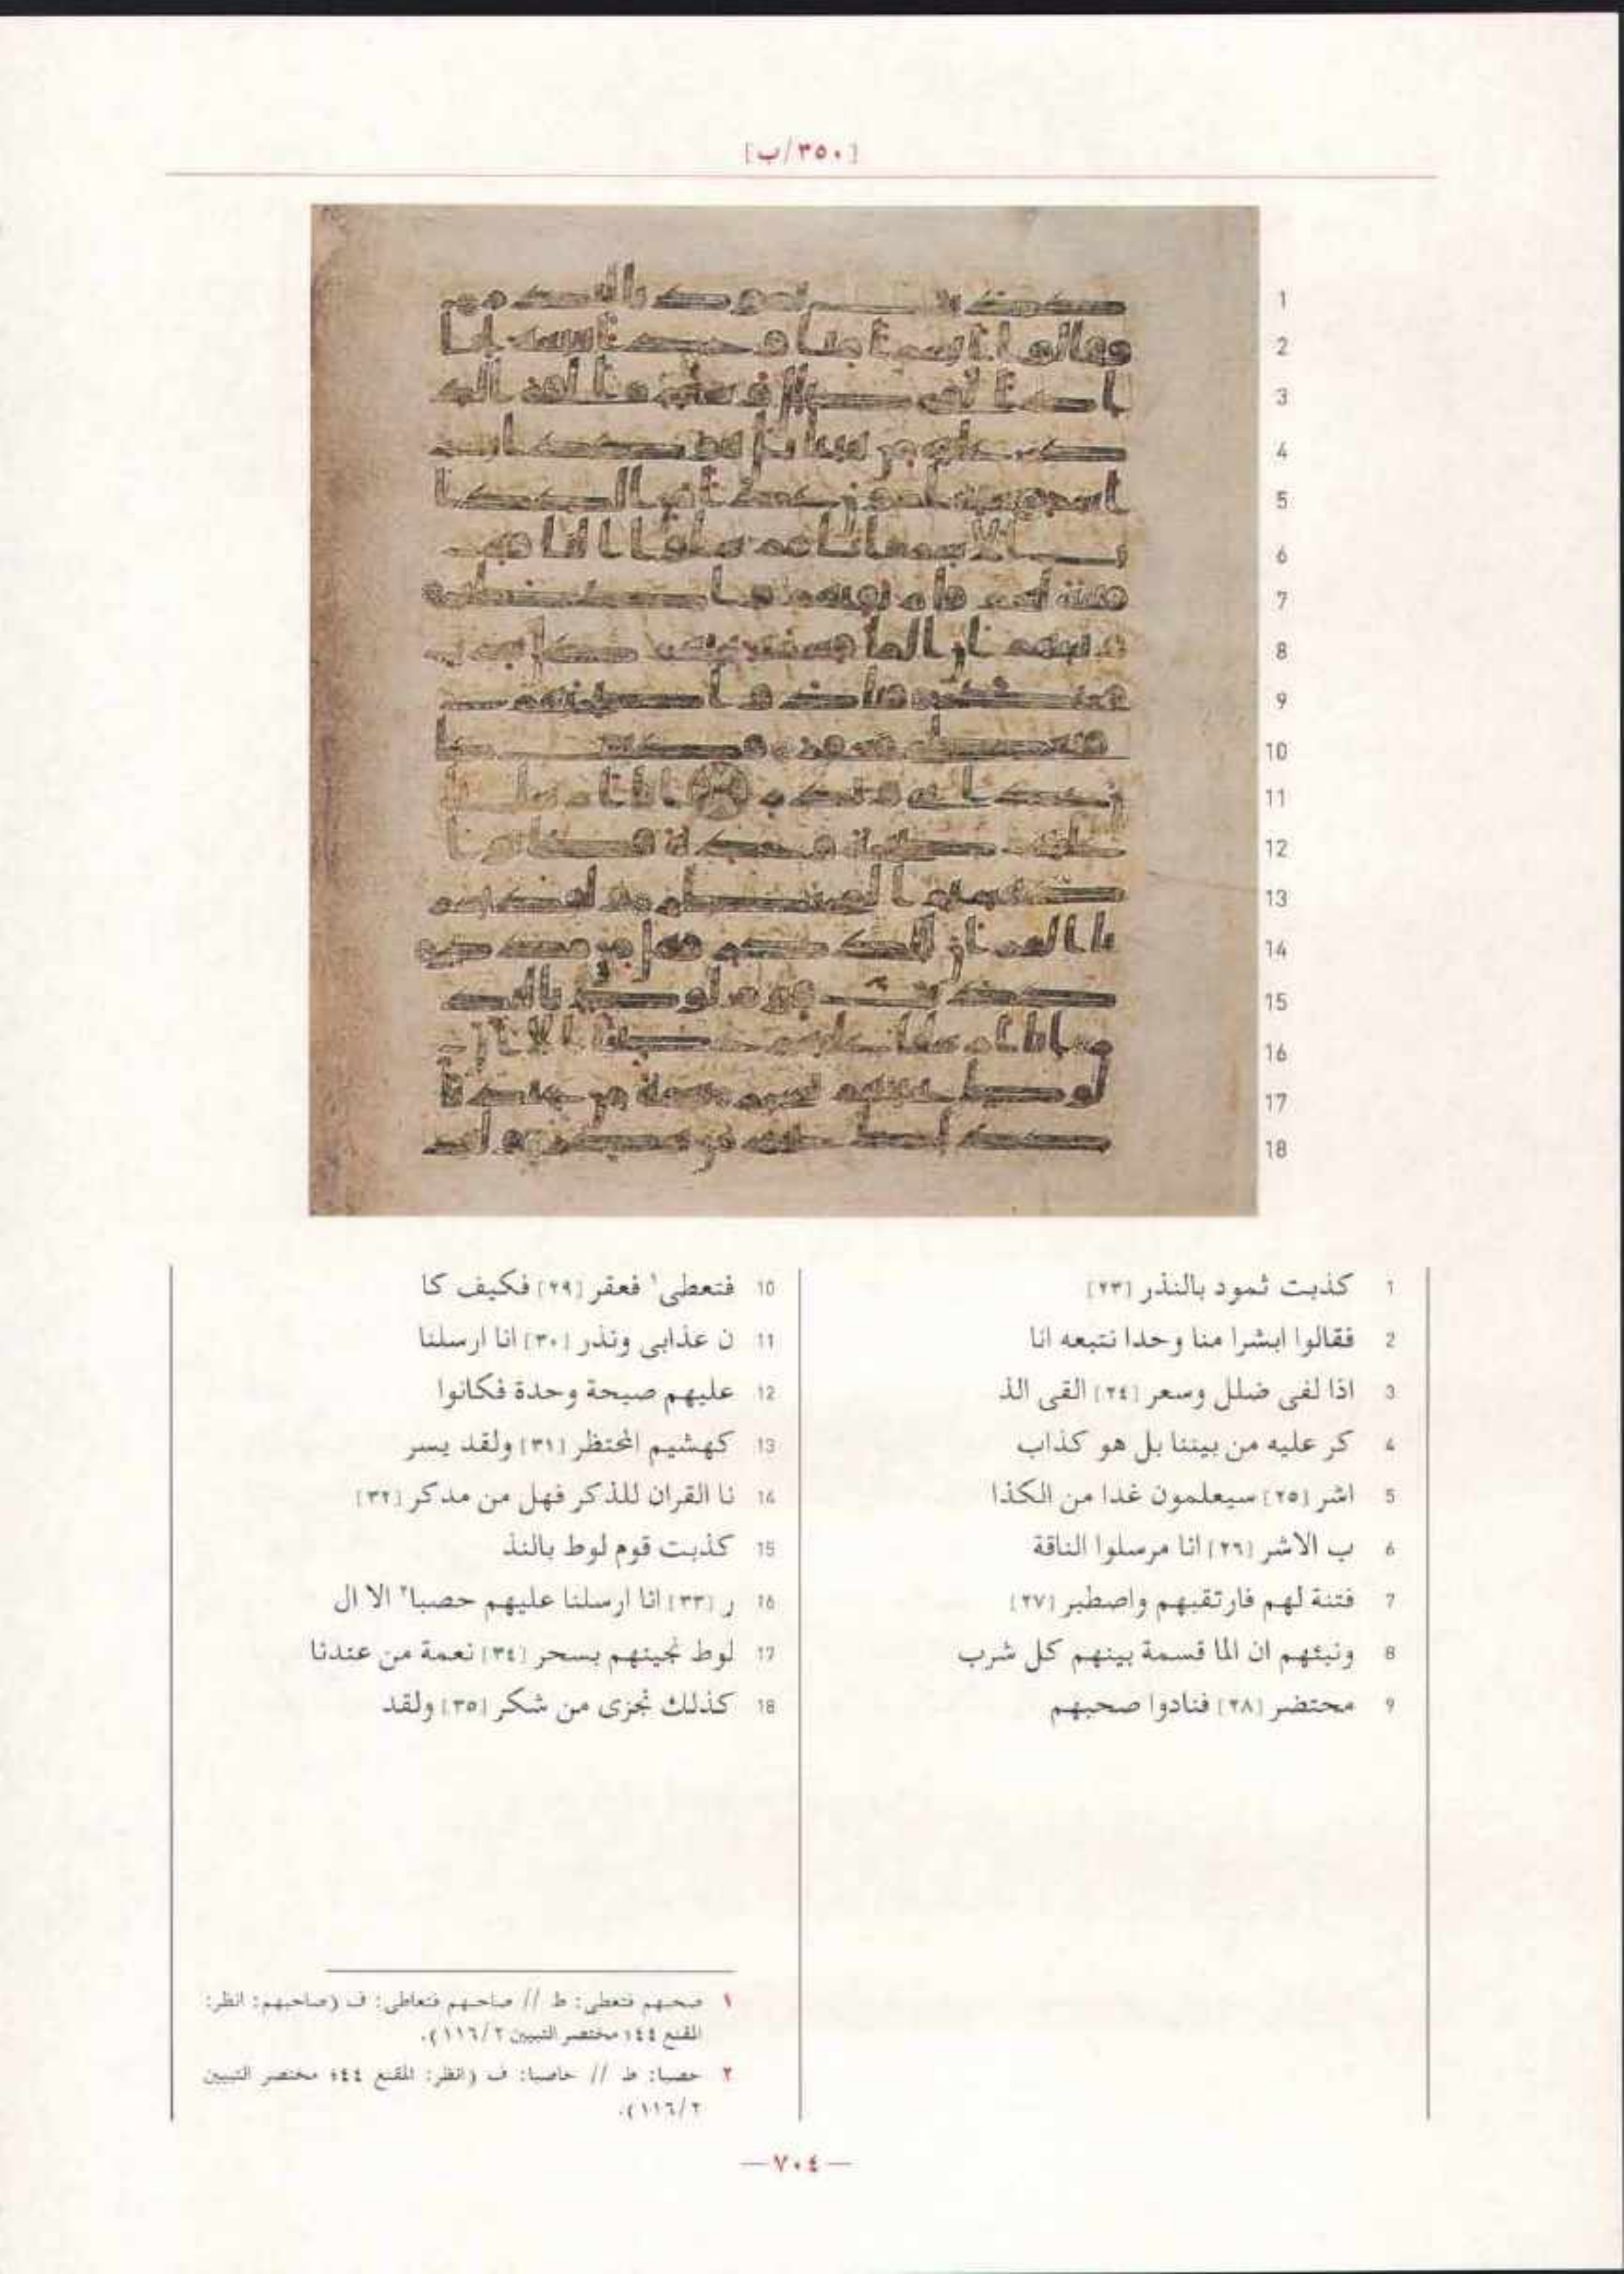 [٣٥٠/ب]
1
2
3
4
5
6
7
8
9
10
11
12
13
14
15
16
17
18
1 كذبت ثمود بالنذر [٢٣]
2 فقالوا ابشرا منا وحدا نتبعه انا
3 اذا لفى ضلل وسعر [٢٤] القى الذ
4 كر عليه من بيننا بل هو كذاب
5 اشر [٢٥] سيعلمون غدا من الكذا
6 ب الاشر [٢٦] انا مرسلوا الناقة
7 فتنة لهم فارتقبهم واصطبر [٢٧]
8 ونبئهم ان الما قسمة بينهم كل شرب
9 محتضر [٢٨] فنادوا صحبهم
10 فتعطى١ فعقر [٢٩] فكيف كا
11 ن عذابى ونذر [٣٠] انا ارسلنا
12 عليهم صيحة وحدة فكانوا
13 كهشيم المحتظر [٣١] ولقد يسر
14 نا القران للذكر فهل من مدكر [٣٢]
15 كذبت قوم لوط بالنذ
16 ر [٣٣] انا ارسلنا عليهم حصبا٢ الا ال
17 لوط نجينهم بسحر [٣٤] نعمة من عندنا
18 كذلك نجزى من شكر [٣٥] ولقد
١ صحبهم فتعطى: ط // صاحبهم فتعاطى: ف (صاحبهم: انظر:
المقنع ٤٤؛ مختصر التبيين ١١٦/٢).
٢ حصبا: ط // حاصبا: ف (انظر: المقنع ٤٤؛ مختصر التبيين
١١٦/٢).
— ٧٠٤ —